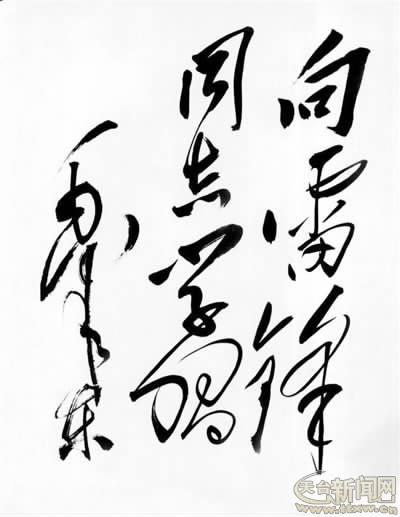 向雷锋
同志学习
毛泽东
天台新闻网
www.ttxw.cn